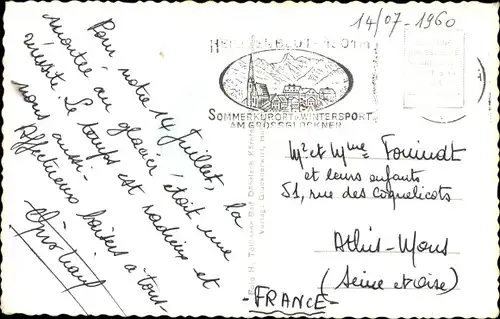 14/07-1960
HEILIGENBLUT 1301m
SOMMERKURORT u. WINTERSPORT
AM GROSSGLOCKNER
Pour notre 14 Juillet, la
montée au glacier était une
réussite. Le temps est radieux et
nous aussi.
Affectueux baisers à tous.
Mr et Mme
et leurs enfants
51, rue des Coquelicots
Athis-Mons
(Seine et Oise)
-FRANCE-